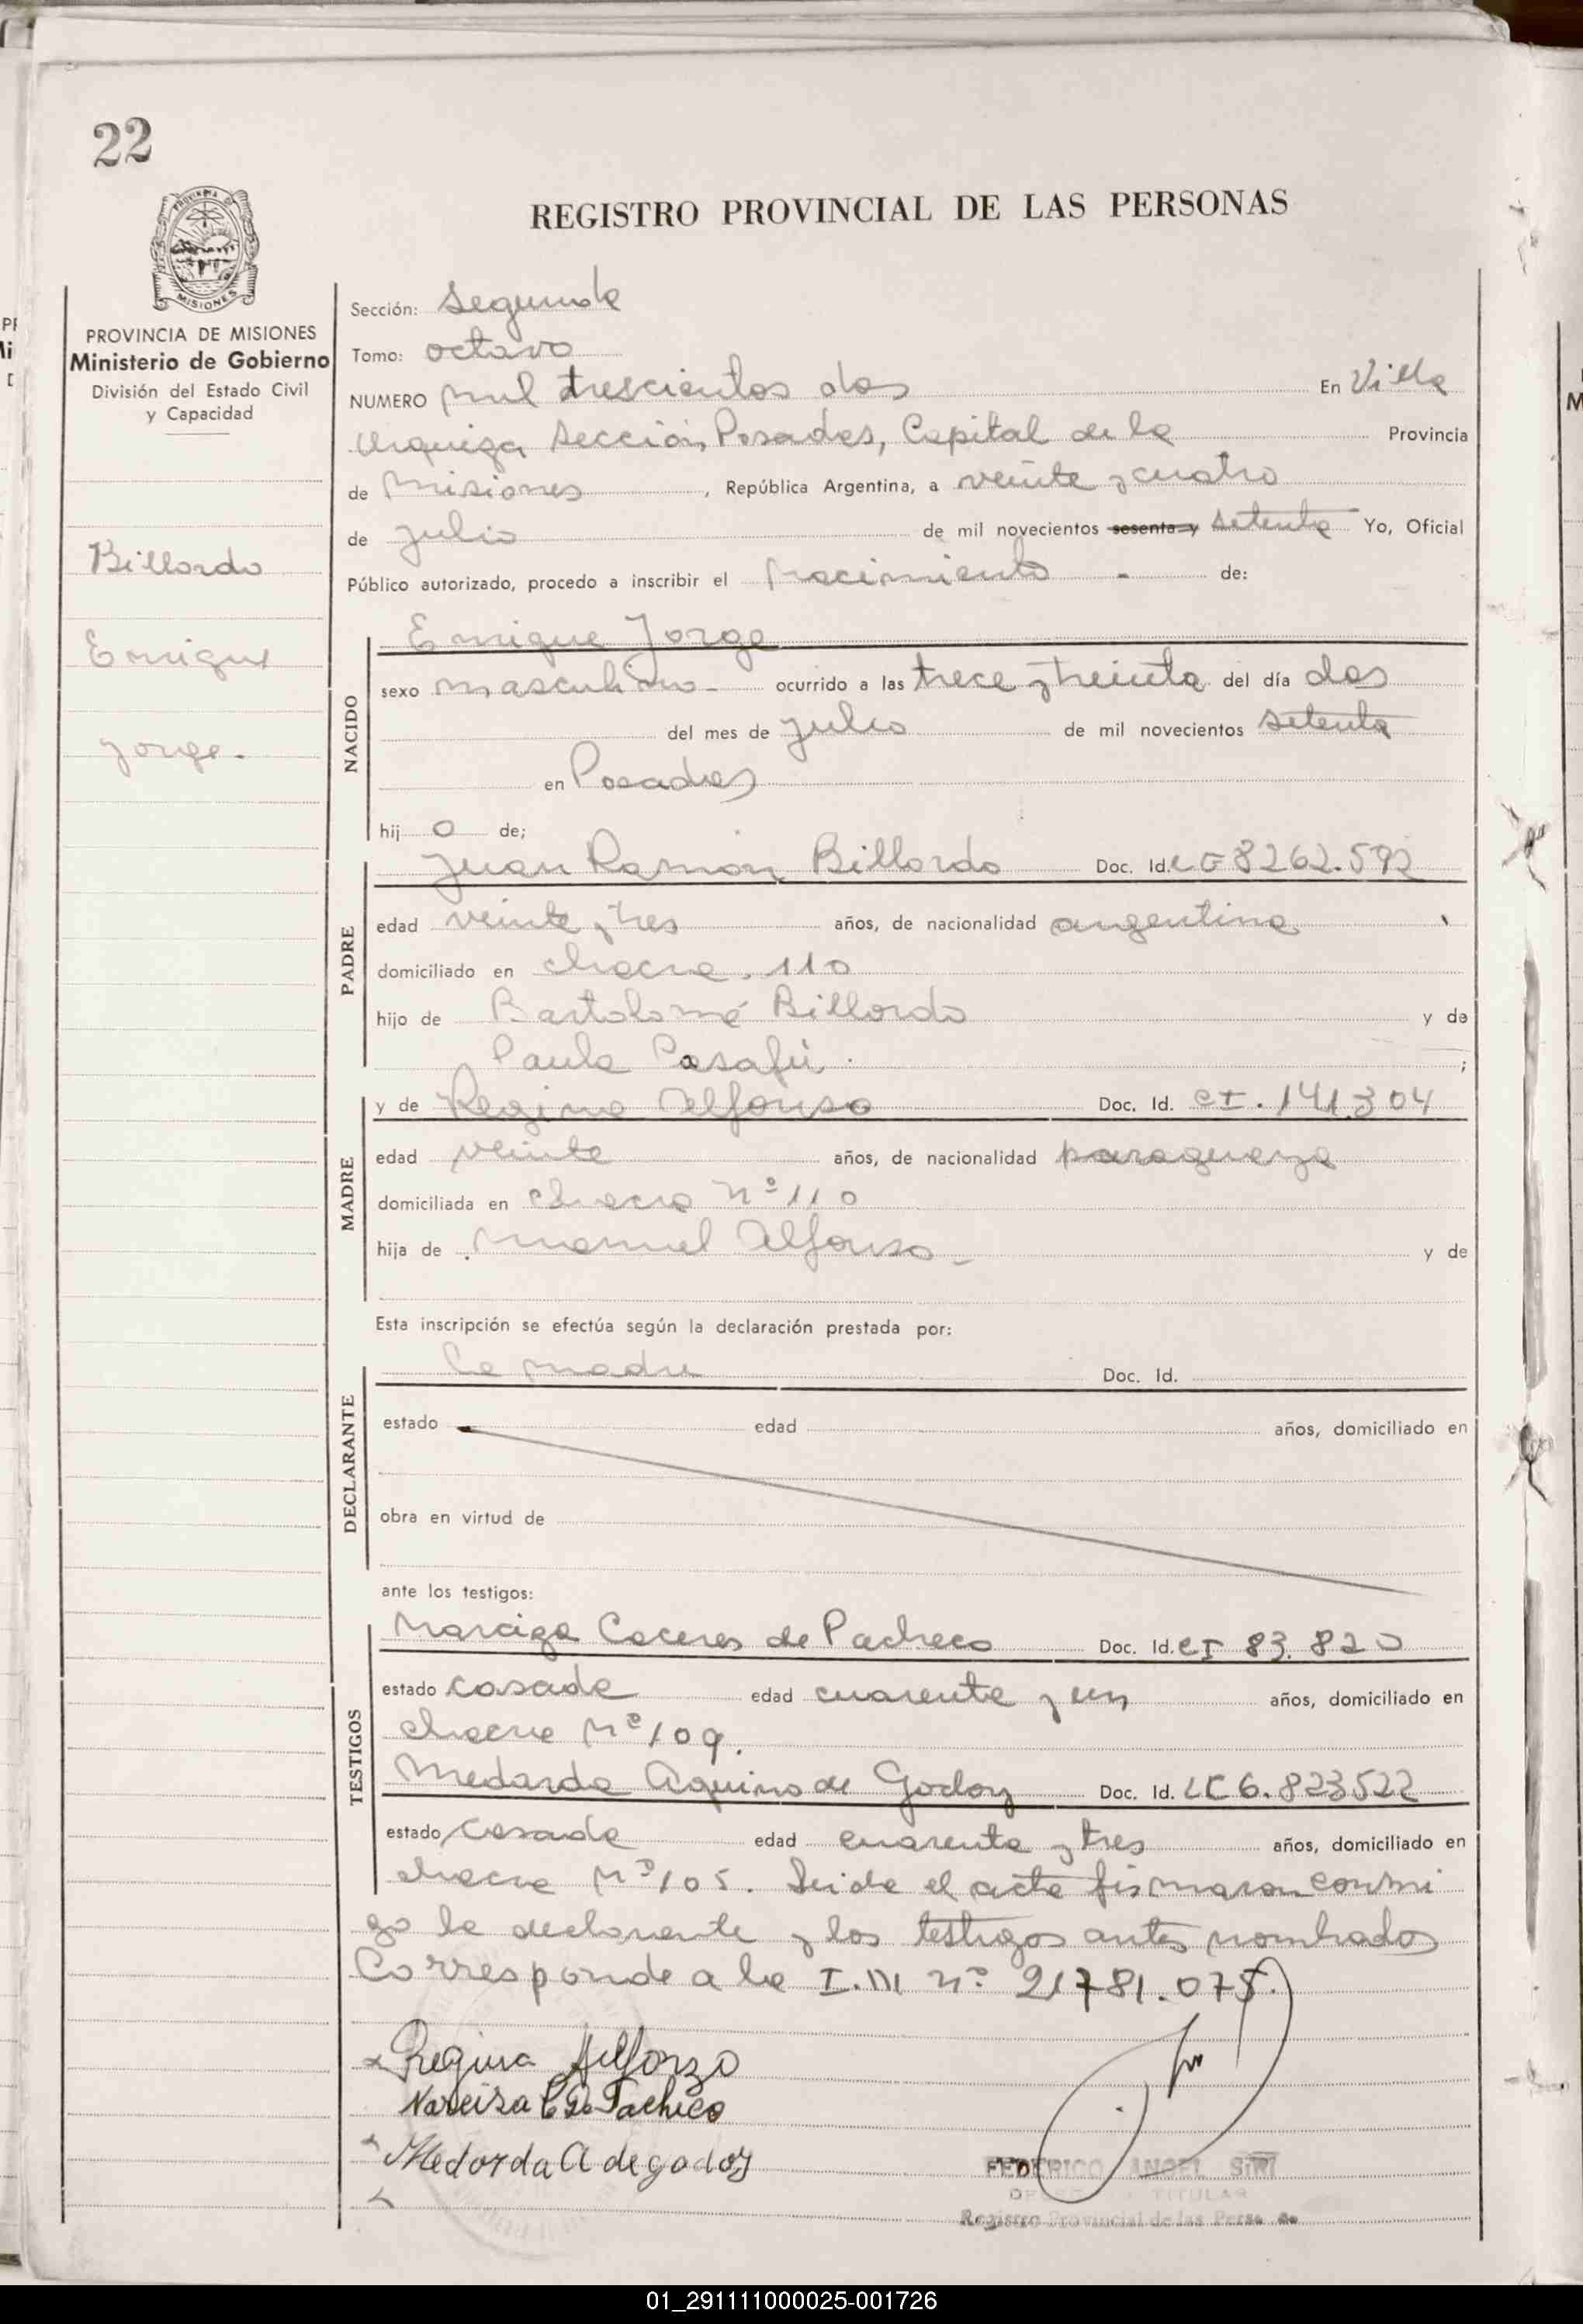 22
PROVINCIA DE
MISIONES
REGISTRO PROVINCIAL DE LAS PERSONAS
PROVINCIA DE MISIONES
Ministerio de Gobierno
División del Estado Civil
y Capacidad
Billordo
Enrique
Jorge.
Sección: Segunda
Tomo: octavo
NUMERO mil trescientos dos En Villa
Urquiza Sección, Posadas, Capital de la Provincia
de Misiones, República Argentina, a veinte y cuatro
de julio de mil novecientos sesenta y setenta Yo, Oficial
Público autorizado, procedo a inscribir el nacimiento - de:
NACIDO
Enrique Jorge
sexo masculino- ocurrido a las trece y treinta del día dos
del mes de julio de mil novecientos setenta
en Posadas
hij o de;
PADRE
Juan Ramon Billordo Doc. Id. LE 8262.592
edad veinte y tres años, de nacionalidad argentina
domiciliado en chacra. 110
hijo de Bartolomé Billordo y de
Paula Casafú. ;
MADRE
y de Regina Alfonso Doc. Id. CI. 141.304
edad veinte años, de nacionalidad paraguaya
domiciliada en chacra Nº 110
hija de Manuel Alfonso- y de
Esta inscripción se efectúa según la declaración prestada por:
DECLARANTE
La madre Doc. Id.
estado edad años, domiciliado en
obra en virtud de
ante los testigos:
TESTIGOS
Narciza Caceres de Pacheco Doc. Id. CI 83.820
estado casada edad cuarenta y un años, domiciliado en
chacra Nº 109.
Medarda Aquino de Godoy Doc. Id. LC 6.823522
estado casada edad cuarenta y tres años, domiciliado en
chacra Nº 105. Leida el acta firmaron conmi
go la declarante y los testigos antes nombrados
Corresponde a la I.M nº 21781.075.
Regina Alfonzo
Narciza C De Pacheco
Medorda A de godoy
FEDERICO ANGEL
TITULAR
Registro Provincial de las Perso
01_291111000025-001726